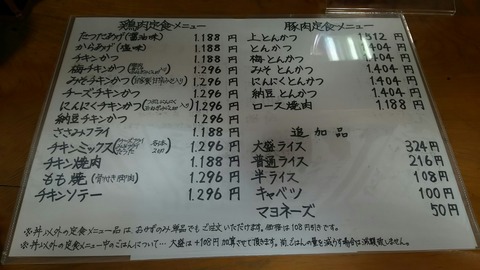 鶏肉定食メニュー
たつたあげ(醤油味) 1.188 円
からあげ(塩味) 1.188 円
チキンかつ 1.188 円
梅チキンかつ 1.296 円
みそチキンかつ 1.296 円
チーズチキンかつ 1.296 円
にんにくチキンかつ 1.296 円
納豆チキンかつ 1.296 円
ささみフライ 1.188 円
チキンミックス 1.296 円
チキン焼肉 1.188 円
もも焼(骨付き胸肉) 1.296 円
チキンソテー 1.296 円
豚肉定食メニュー
上.とんかつ 1.512 円
とんかつ 1.404 円
梅とんかつ 1.404 円
みそとんかつ 1.404 円
にんにくとんかつ 1.404 円
納豆とんかつ 1.404 円
ロース焼肉 1.188 円
追加品
大盛ライス 324円
普通ライス 216円
半ライス 108円
キャベツ 100円
マヨネーズ 50円
※丼以外の定食メニュー品は、おかずのみ単品でもご注文いただけます。価格は108円引きです。
※丼以外の定食メニュー中のごはんについて…大盛は+108円加算させて頂きます。尚ごはんの量を減らす場合は減額致しません。